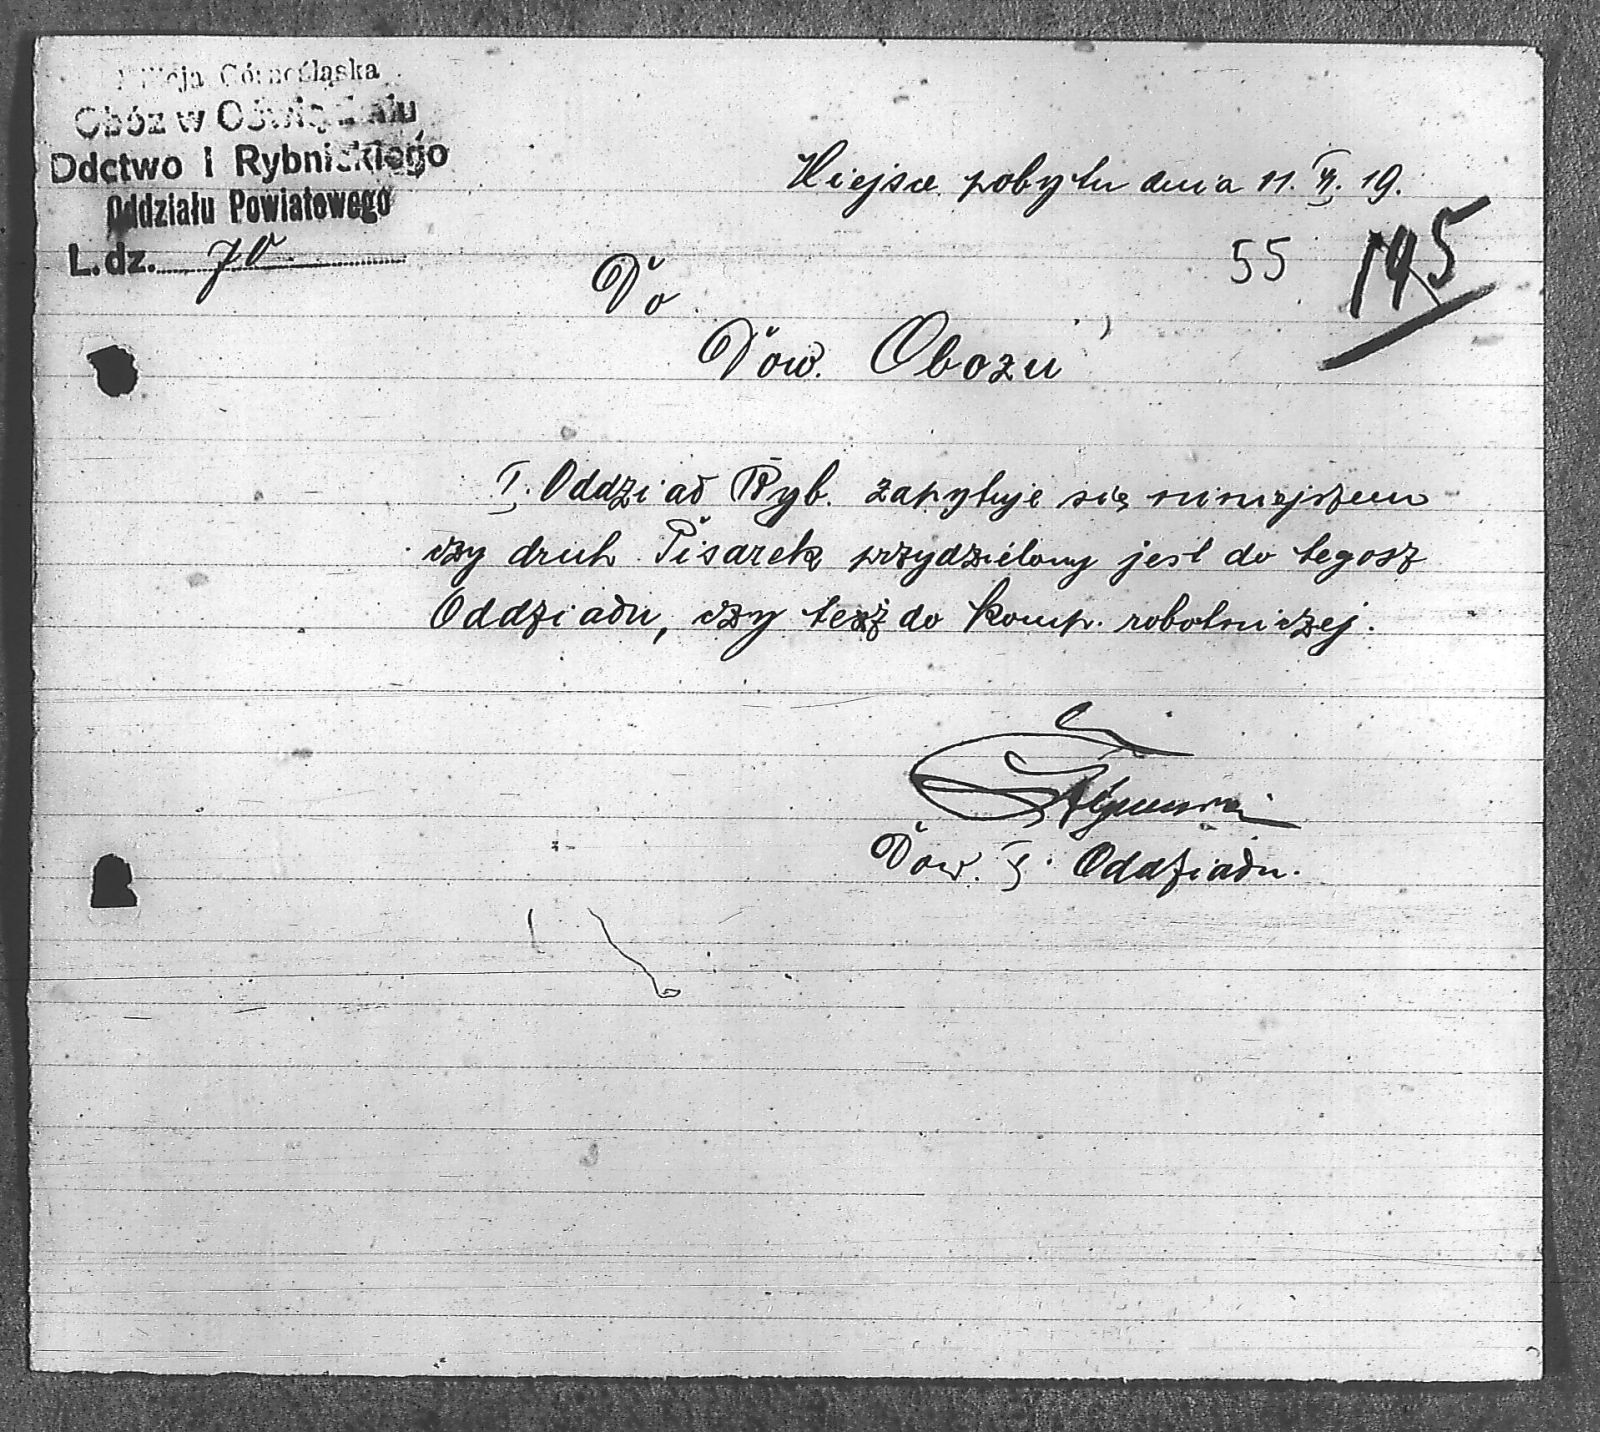 Górnośląska
Obóz w Oświęcimiu
Ddctwo I Rybnickiego
Oddziału Powiatowego
L. dz. 70
Miejsce pobytu dnia 11. 19.
55 195
Do
Dow. Obozu
I. Oddział Ryb. zapytuje się niniejszem
czy druh Pisarek przydzielony jest do tegosz
Oddziału, czy też do komp. robotniczej.
Dow. I. Oddziału.